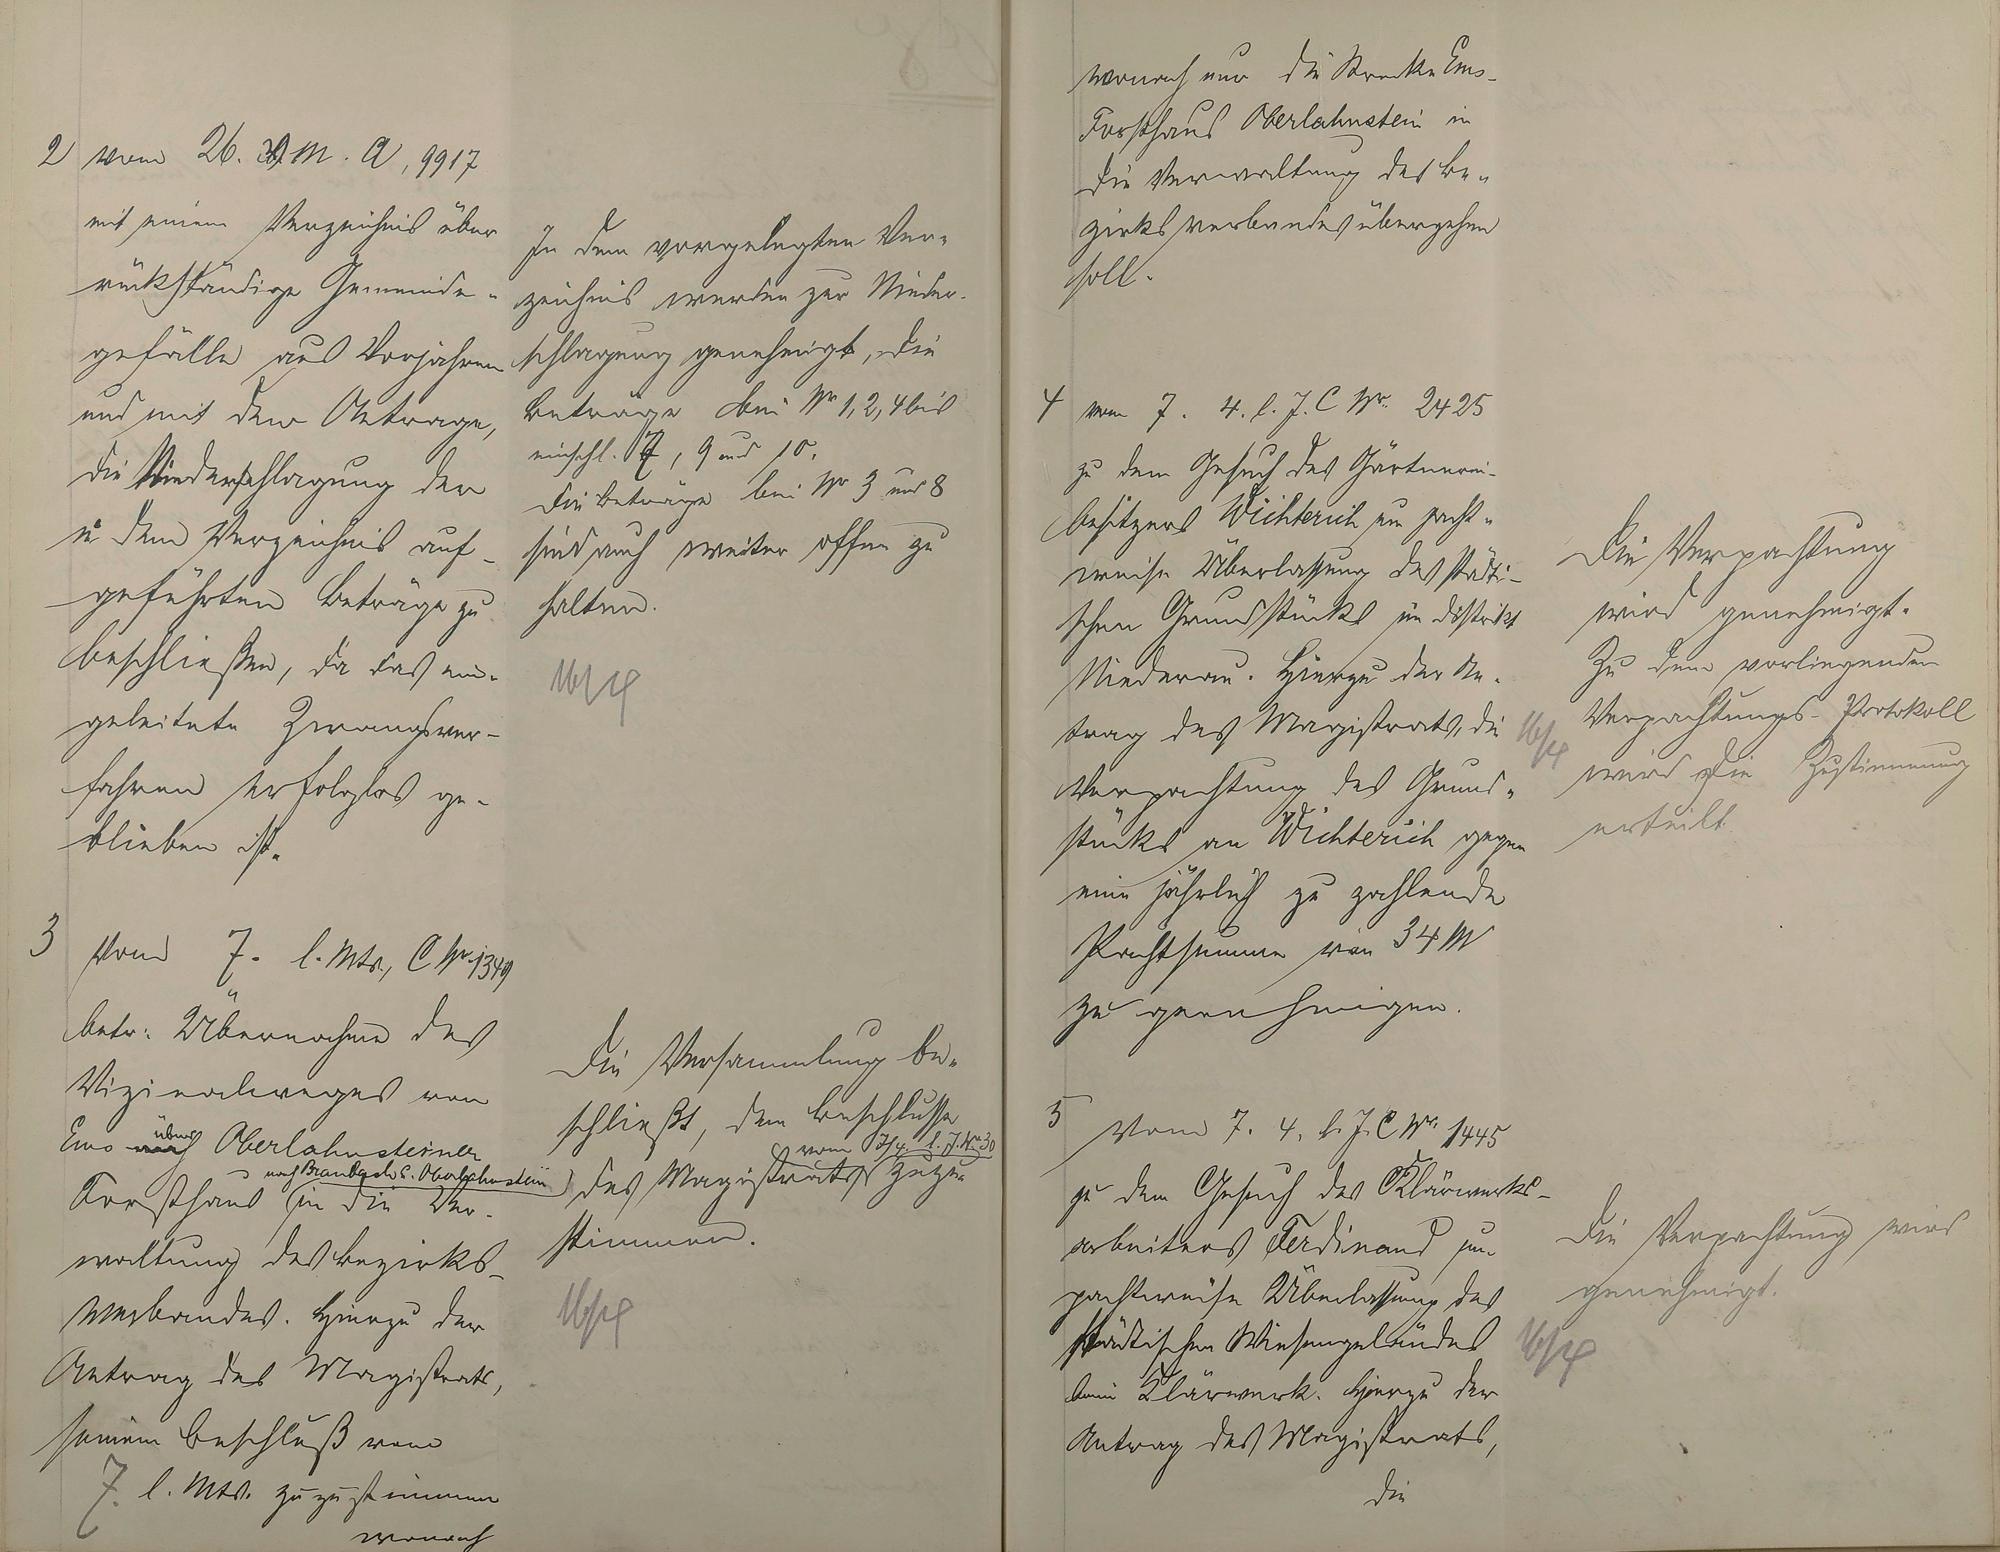 2 vom 26. v. M. A, 9917
mit einem Verzeichnis über
rückständige Gemeinde-
gefälle aus Vorjahren
und mit dem Antrage,
die Niederschlagung der
in dem Verzeichnis auf-
geführten Beträge zu
beschließen, da das ein-
geleitete Zwangsver-
fahren erfolglos ge-
blieben ist.
In dem vorgelegten Ver-
zeichnis werden zur Nieder-
schlagung genehmigt, die
Beträge bei Nr 1, 2, 4 bis
einschl. 7, 9 und 10.
Die Beträge bei Nr 3 und 8
sind auch weiter offen zu
halten.
16/4
3 Vom 7. l. Mts., C Nr. 1349
betr: Übernahme des
Vizinalweges von
Ems über Oberlahnsteiner
Forsthaus nach Braubach u. Oberlahnstein
in die Ver-
waltung des Bezirks-
verbandes. Hierzu der
Antrag des Magistrats,
seinem Beschluß vom
7. l. Mts. zuzustimmen
wonach
Die Versammlung be-
schließt, dem Beschlusse
des Magistrats vom 7/4. l. J. Nr 30 zuzu-
stimmen.
16/4
wonach nur die Strecke Ems-
Forsthaus Oberlahnstein in
die Verwaltung des Be-
zirksverbandes übergehen
soll.
4 vom 7. 4. l. J. C Nr. 2425
zu dem Gesuch des Gärtnerei-
besitzers Wichterich um pacht-
weise Überlassung des städti-
schen Grundstücks im Distrikt
Niederau. Hierzu der An-
trag des Magistrats, die
Verpachtung des Grund-
stücks an Wichterich gegen
eine jährlich zu zahlende
Pachtsumme von 34 M
zu genehmigen.
Die Verpachtung
wird genehmigt.
Zu dem vorliegenden
Verpachtungs-Protokoll
wird die Zustimmung
erteilt.
16/4
5 Vom 7. 4. l. J. C Nr. 1445
zu dem Gesuch des Klärwerks-
arbeiters Ferdinand um
pachtweise Überlassung des
städtischen Wiesengeländes
beim Klärwerk. Hierzu der
Antrag des Magistrats,
die
Die Verpachtung wird
genehmigt.
16/4